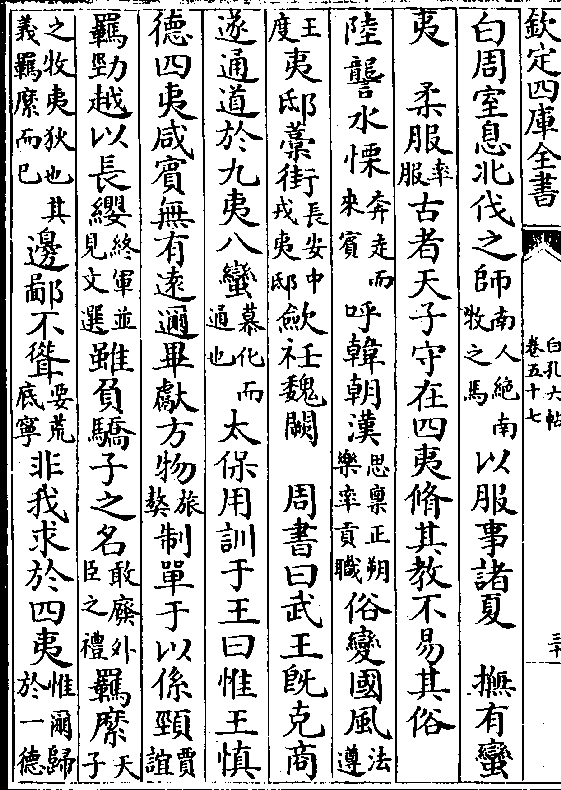 欽定四庫全書
白孔六帖
卷五十七
三十一
白周室息北伐之師南人絶南牧之馬以服事諸夏　撫有蠻
夷　柔服率服古者天子守在四夷脩其教不易其俗
陸讋水慄奔走而來賓呼韓朝漢思稟正朔樂率貢職俗變國風法遵
王度夷邸藁街長安中戎夷邸斂衽魏闕　周書曰武王旣克商
遂通道於九夷八蠻慕化而通也太保用訓于王曰惟王慎
德四夷咸賓無有遠邇畢獻方物旅獒制單于以係頸賈誼
羈勁越以長纓終軍並見文選雖負驕子之名敢廢外臣之禮羈縻天子
之牧夷狄也義羈縻而已其邊鄙不聳要荒底寧非我求於四夷惟爾歸於一德